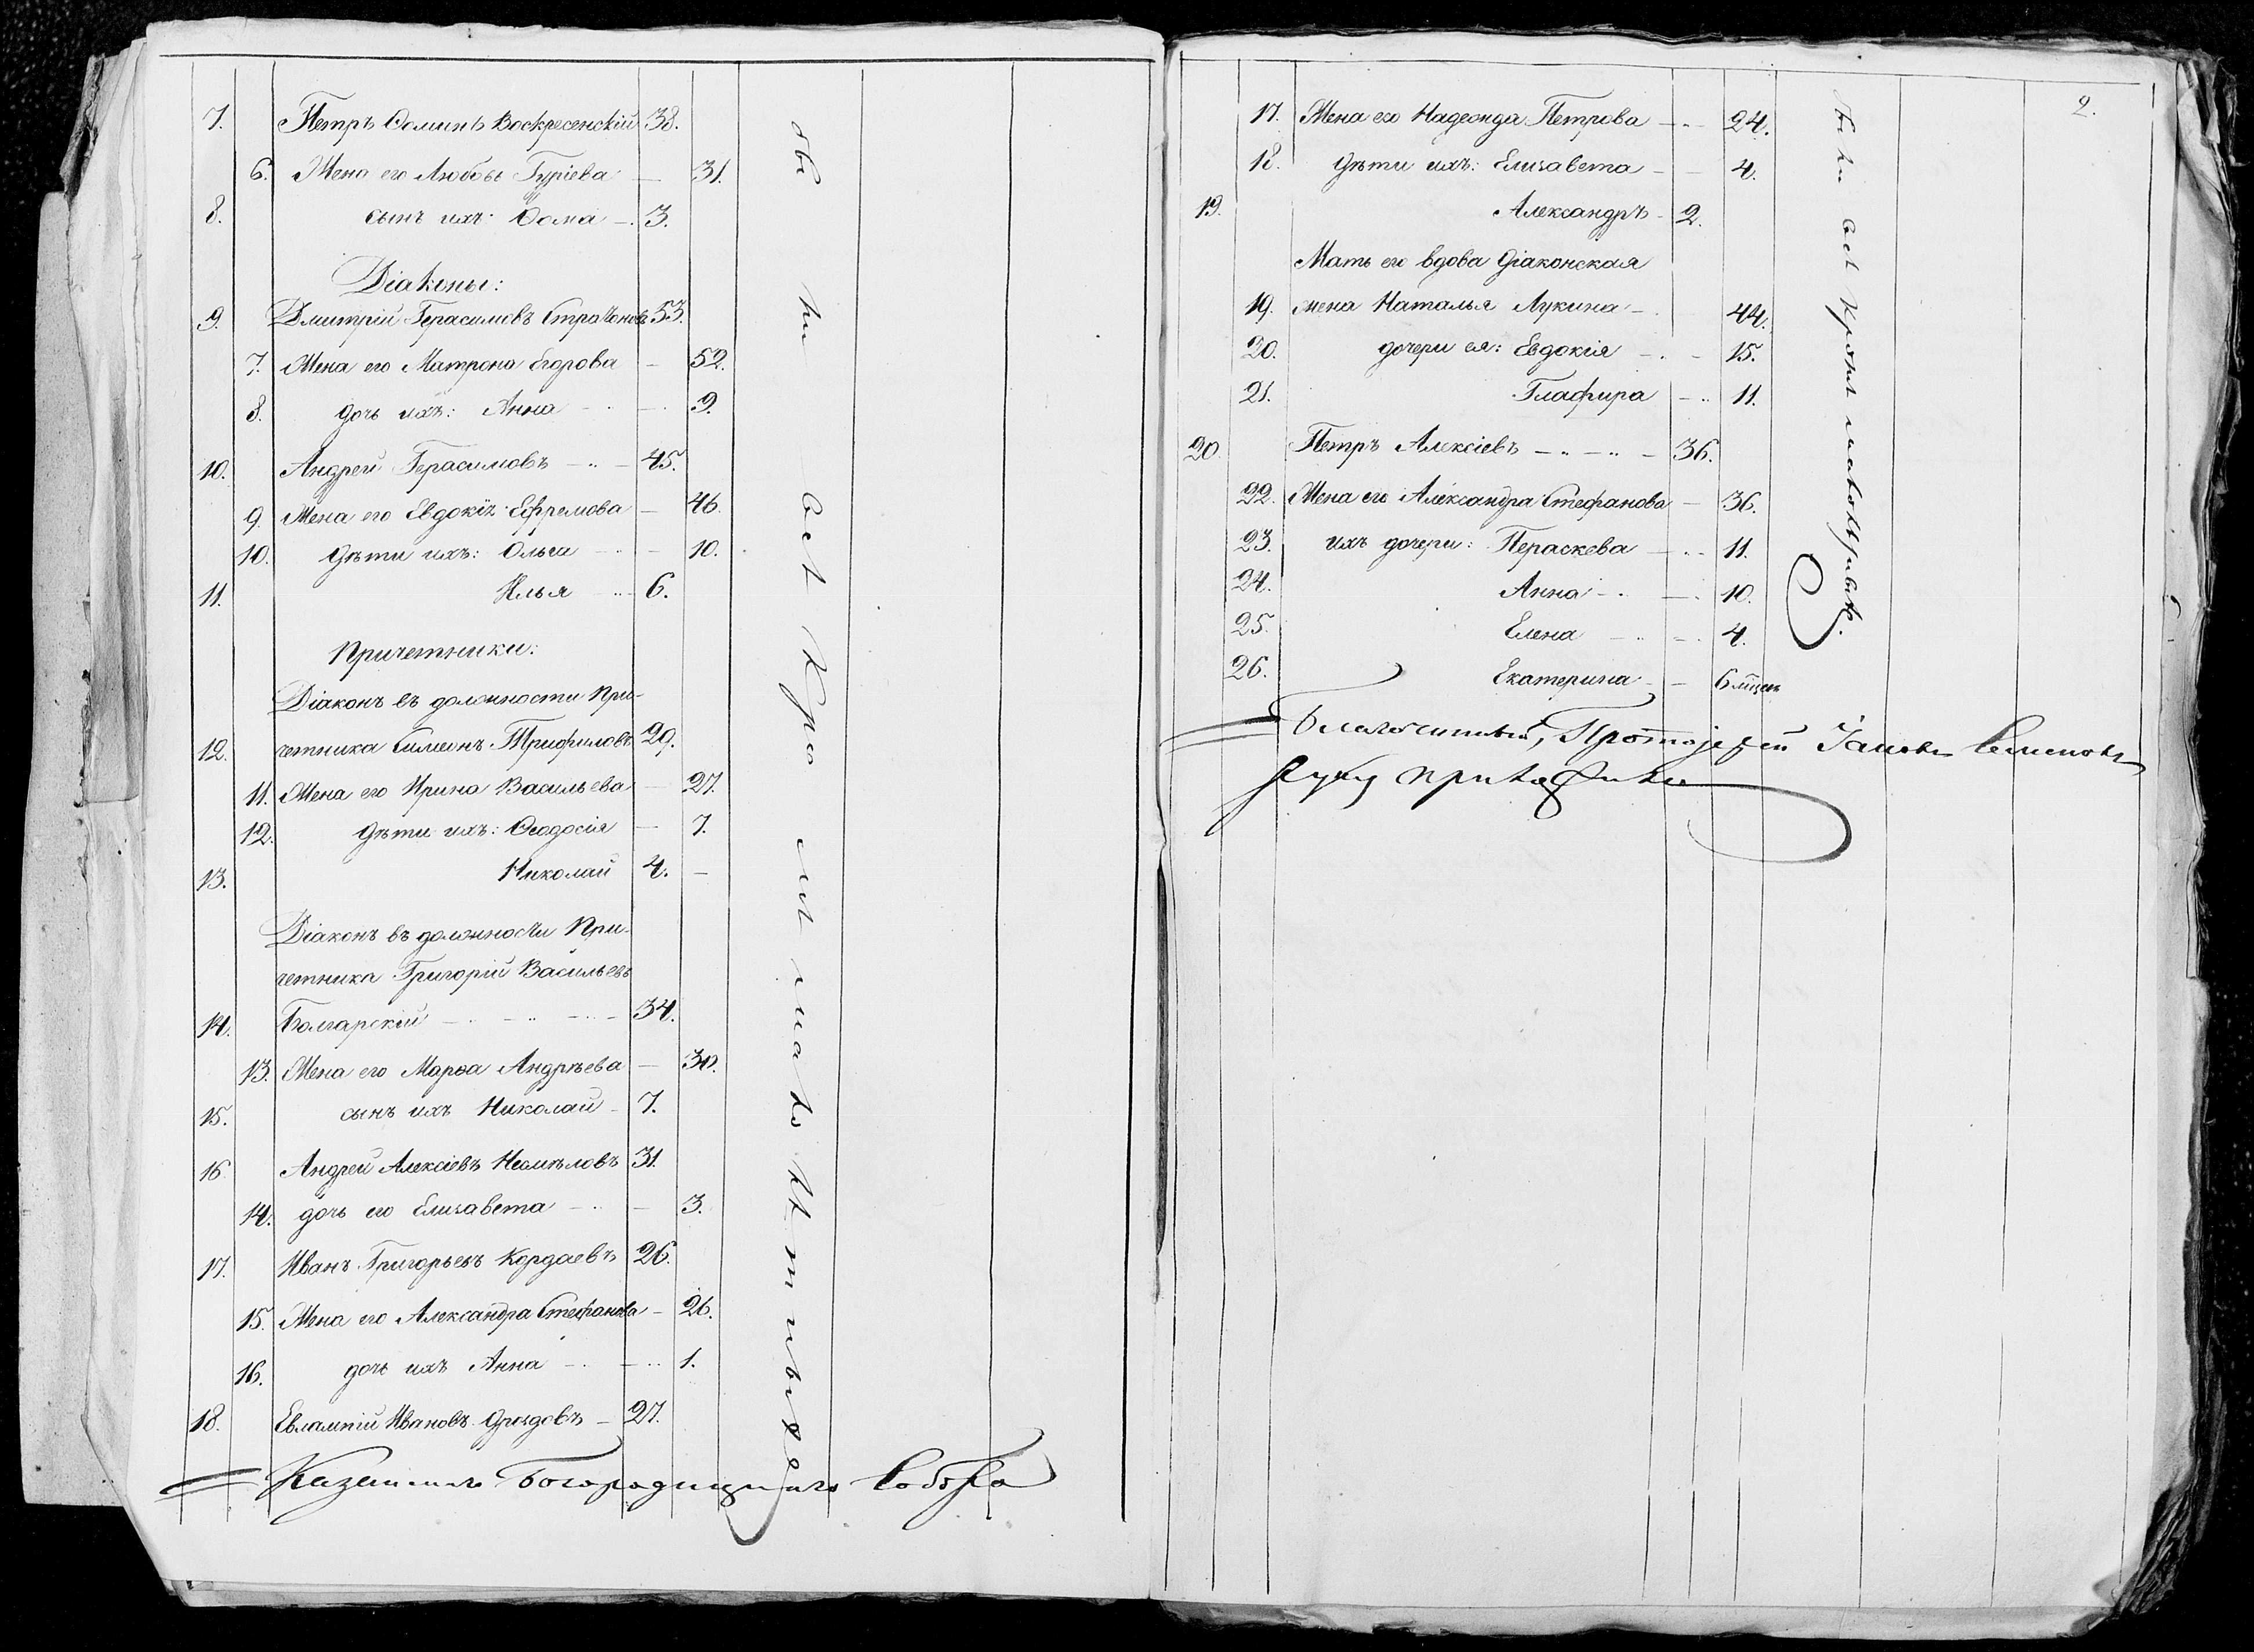 7. Петръ Ѳоминъ Воскресенскій 38.
6. Жена его Любовь Гуріева — 31.
8. сынъ ихъ: Ѳома — 3.
Діаконы:
9. Дмитрій Герасимовъ Страхоновъ 53.
7. Жена его Матрона Егорова — 52.
8. дочь ихъ: Анна — 9.
10. Андрей Герасимовъ — 45.
9. Жена его Евдокія Ефремова — 46.
10. Дѣти ихъ: Ольга — 10.
11. Илья — 6.
Причетники:
Діаконъ въ должности При-
12. четника Симеонъ Трифиловъ 29.
11. Жена его Ирина Васильева — 27.
12. Дѣти ихъ: Ѳеодосія — 7.
13. Николай 4. —
Діаконъ въ должности При-
четника Григорій Васильевъ
14. Болгарскій — 34.
13. Жена его Марѳа Андрѣева — 30.
15. сынъ ихъ Николай — 7.
16. Андрей Алексіевъ Несмѣловъ 31.
14. дочь его Елизавета — 3.
17. Иванъ Григорьевъ Кордаевъ 26.
15. Жена его Александра Стефанова — 26.
16. дочь ихъ Анна — 1.
18. Евлампій Ивановъ Дроздовъ — 27.
Богородицкаго Собора
2.
17. Жена его Надежда Петрова — 24.
18. Дѣти ихъ: Елизавета — 4.
19. Александръ — 2.
Мать его вдова Діаконская
19. жена Наталья Лукина — 44.
20. дочери ея: Евдокія — 15.
21. Глафира — 11.
20. Петръ Алексіевъ — 36.
22. Жена его Александра Стефанова — 36.
23. ихъ дочери: Пераскева — 11.
24. Анна — 10.
25. Елена — 4.
26. Екатерина — 6 мцев
Благочинный, Протоіерей Іаковъ Семеновъ
руку приложилъ